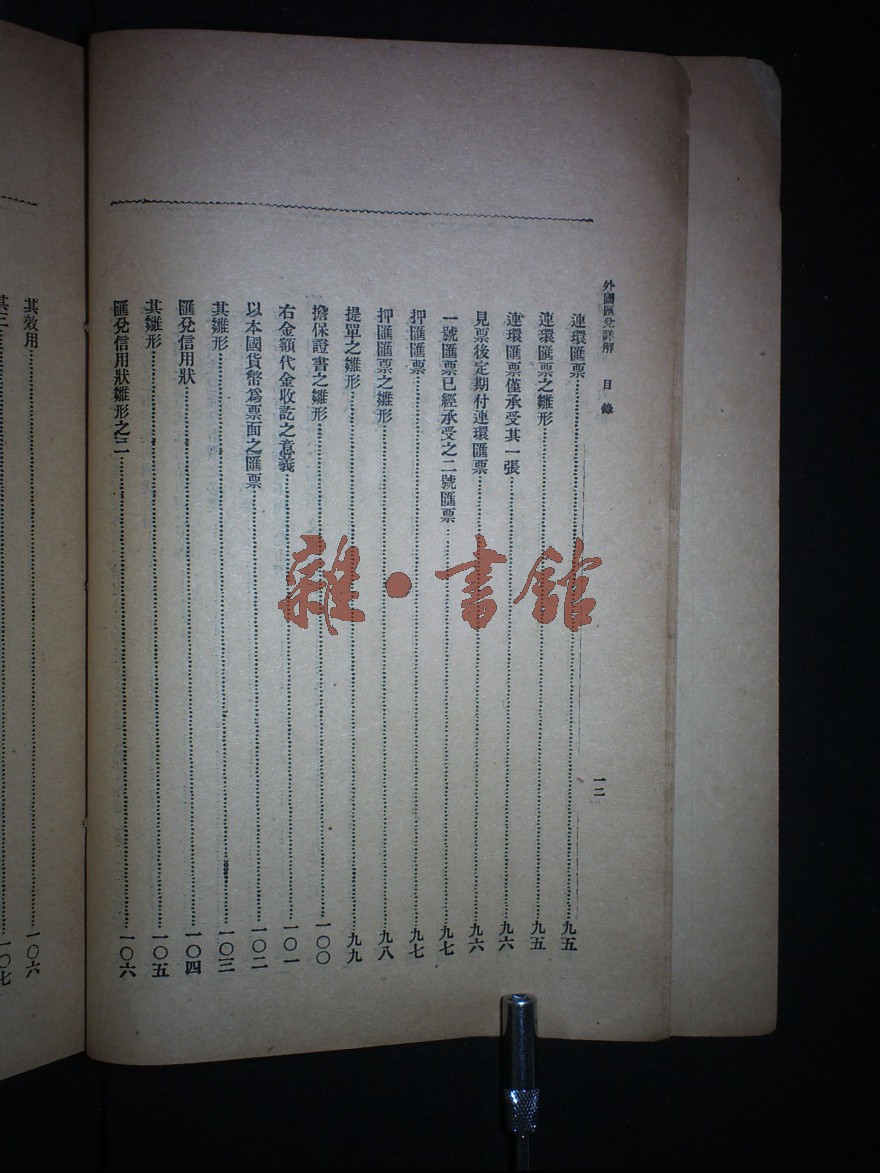 外國匯兌詳解　目錄　一二
連環匯票……九五
連環匯票之雛形……九五
連環匯票僅承受其一張……九六
見票後定期付連環匯票……九六
一號匯票已經承受之二號匯票……九七
押匯匯票……九七
押匯匯票之雛形……九八
提單之雛形……九九
擔保證書之雛形……一〇〇
右金額代金收訖之意義……一〇一
以本國貨幣爲票面之匯票……一〇二
其雛形……一〇三
匯兌信用狀……一〇四
其雛形……一〇五
匯兌信用狀雛形之二……一〇六
其效用……一〇六
其三……一〇七
雜·書館